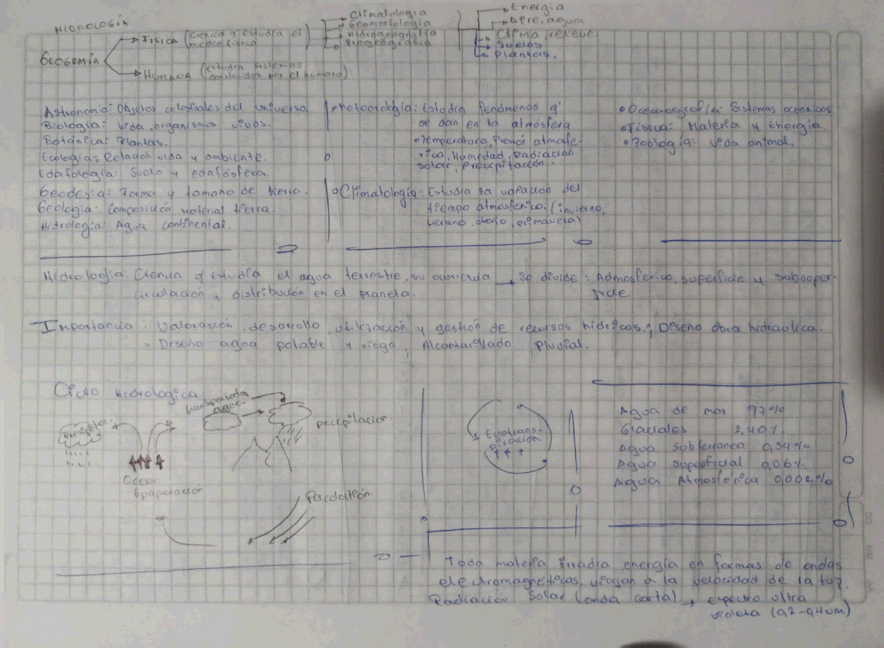 HIDROLOGÍA
GEOGRAFÍA
→ FÍSICA (ciencia q estudia el medio físico)
→ Climatología
→ Geomorfología
→ Hidrogeografía
→ Biogeografía
→ Energía
→ Aire, agua
→ Clima, relieve
→ Suelos
→ Plantas.
→ HUMANA (estudia sistemas construidos por el humano)
Astronomía: Objetos celestiales del universo.
Biología: Vida, organismos vivos.
Botánica: Plantas.
Ecología: Relación vida y ambiente.
Edafología: Suelo y edafósfera.
Geodesia: Forma y tamaño de tierra.
Geología: Composición material tierra.
Hidrología: Agua continental.
Meteorología: Estudia fenómenos q'
se dan en la atmósfera
• Temperatura, Presión atmosfé-
rica, Humedad, Radiación
solar, Precipitación.
Climatología: Estudia la variación del
tiempo atmosférico. (invierno,
verano, otoño, primavera)
• Oceanografía: Sistemas oceánicos
• Física: Materia y Energía
• Zoología: vida animal.
Hidrología: Ciencia q estudia el agua terrestre, su
→ Se divide: Atmosférico, superficie y subsuper-
ficie.
circulación y distribución en el planeta.
Importancia: Valoración, desarrollo, utilización y gestión de recursos hídricos, Diseño obra hidraúlica.
• Diseño agua potable y riego, Alcantarillado pluvial.
Ciclo Hidrologica
precipitación
Ocean
Evaporación
Percolation.
Evapotrans-
piración
Agua de mar 97%
Glaciales 2,40%
Agua Subterranea 0,54%
Agua Superficial 0,06%
Agua Atmosférica
Toda materia irradia energía en formas de ondas
electromagneticas, viajan a la velocidad de la luz.
Radiación Solar (onda corta) → espectro ultra
violeta (0,2-0,4um)